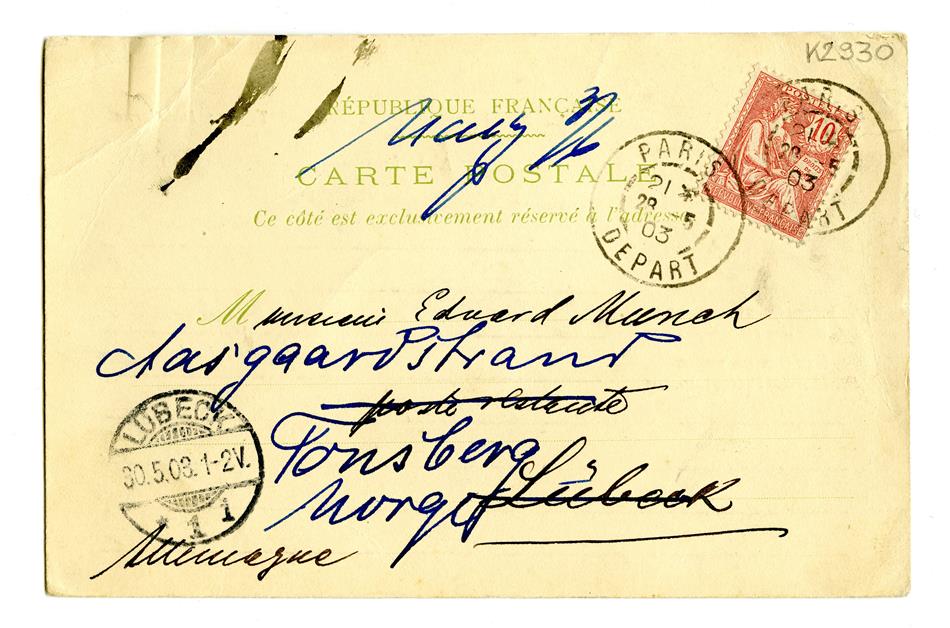 K2930
RÉPUBLIQUE FRANÇAISE
CARTE POSTALE
Ce côté est exclusivement réservé à l'adresse
POSTES
10
RÉPUBLIQUE FRANÇAISE
PARIS
21
28 5
03
DEPART
PARIS
21
28 5
03
DEPART
Monsieur Edvard Munch
Aasgaardstrand
poste restante
Tonsberg
Norge
Lübeck
Allemagne
LÜBECK
30.5.03.1-2V.
* 1 i